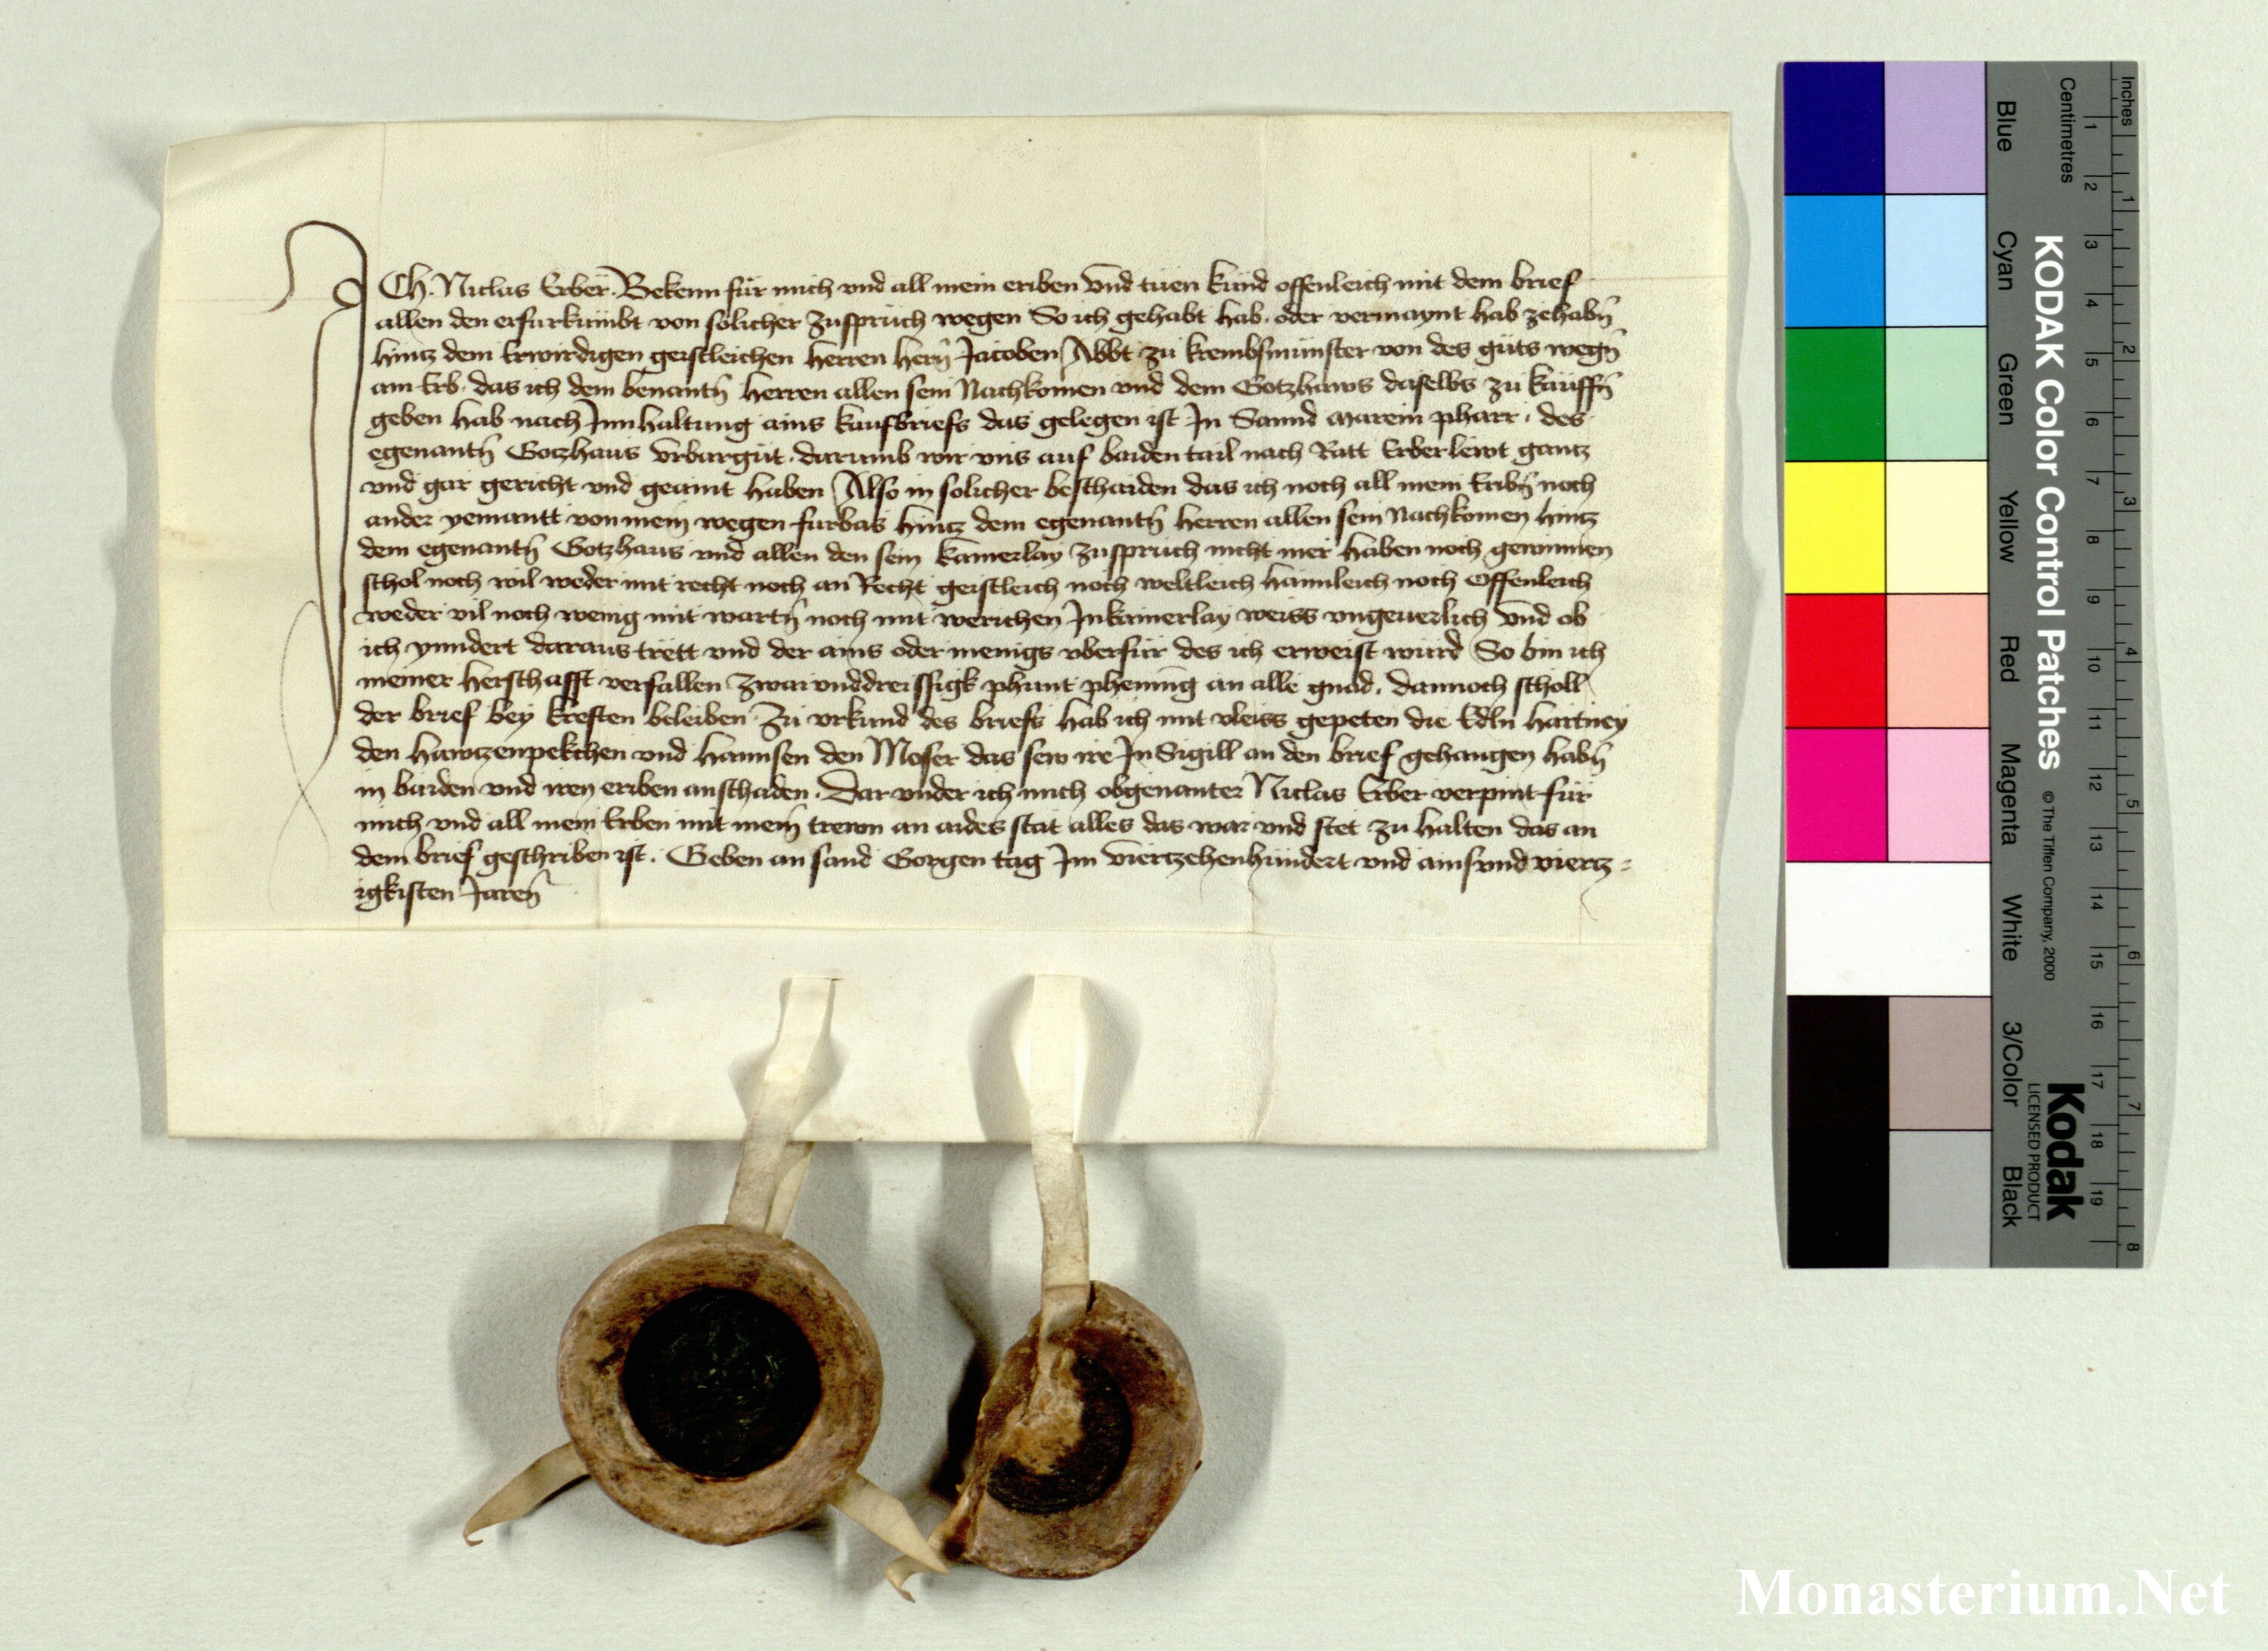 ICh Niclas Erber Bekenn für mich vnd all mein eriben vnd tuen kund offenleich mit dem brief
allen den er fürkümbt von solicher zuspruch wegen So ich gehabt hab oder vermaynt hab zehabn̄
hintz dem Erwirdigen geistleichen herren hern̄ Jacoben Abbt zu krembsmünster von des guts wegn̄
am Erb das ich dem benantn̄ herren allen sein Nachkomen vnd dem Gotzhaws daselbs zu kauffn̄
geben hab nach Innhaltung ains kaufbriefs das gelegen ist In Sannd Marein pharr des
egenantn̄ Gotzhaus vrbargut darumb wir vns auf baiden tail nach Ratt Erber lewt gantz
vnd gar gericht vnd geaint haben Also in solicher beschaiden das ich noch all mein Eribn̄ noch
ander yemantt von mein wegen furbas hintz dem egenantn̄ herren allen sein Nachkomen hintz
dem egenantn̄ Gotzhaus vnd allen den sein kainerlay zuspruch nicht mer haben noch gewinnen
schol noch wil weder mit recht noch an Recht geistleich noch weltleich haimleich noch Offenleich
weder vil noch wenig mit wartn̄ noch mit werichen In kainerlay weiss vngeuerlich vnd ob
ich ynndert daraus trett vnd der ains oder menigs vberfür des ich erweist würd So bin ich
meiner herschafft verfallen zwai vnddreissigk phunt phening an alle gnad dannoch scholl
der brief bey kreften beleiben Zu vrkund des briefs hab ich mit vleiss gepeten die Edln hartney
den hawtzenpekchen vnd hannsen den Moser das sew ire In Sigill an den brief gehangen habn̄
in baiden vnd iren eriben an schaden Dar vnder ich mich obgenanter Niclas Erber verpint für
mich vnd all mein Erben mit mein̄ trewn an aides stat alles das war vnd stet zu halten das an
dem brief geschriben ist. Geben an sand Gorgen tag Im viertzehenhundert vnd ains vnd viertz=
igkisten Jaren̄
Inches
Centimetres
1 2 3 4 5 6 7 8
1 2 3 4 5 6 7 8 9 10 11 12 13 14 15 16 17 18 19
KODAK Color Control Patches © The Tiffen Company, 2000
Kodak
LICENSED PRODUCT
Blue Cyan Green Yellow Red Magenta White 3/Color Black
Monasterium.Net